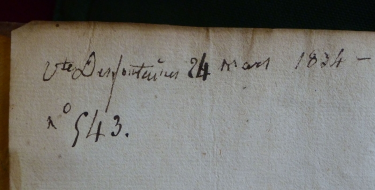 Vte Desfontaines 24 mars 1834 –
No 543.